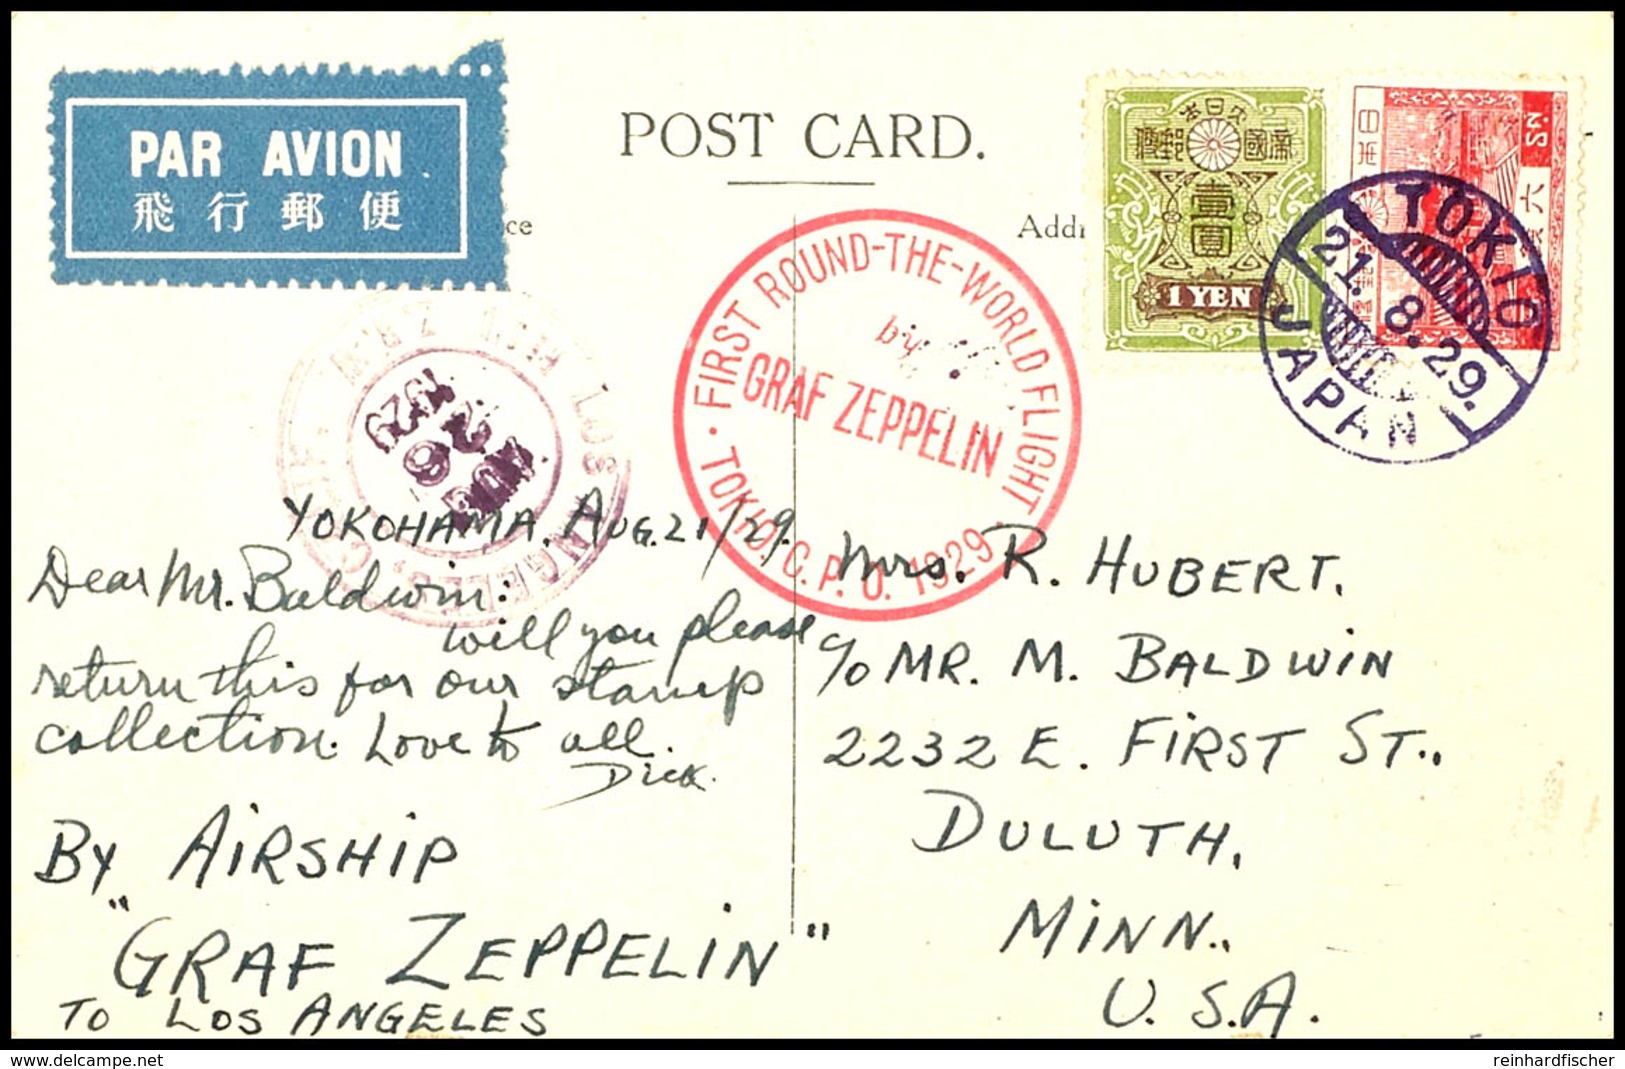 PAR AVION
飛行郵便
POST CARD.
ce
Add
大日本
帝國郵便
壹圓
1 YEN
日本
六
SN.
TOKIO
21.8.29.
JAPAN
FIRST ROUND-THE-WORLD FLIGHT
by
GRAF ZEPPELIN
TOKIO. C. P. O. 1929
LOS ANGELES,
AUG
26
1929
YOKOHAMA, AUG. 21/29.
Dear Mr. Baldwin:
will you please
return this for our stamp
collection. Love to all.
Dick.
BY AIRSHIP
"GRAF ZEPPELIN"
TO LOS ANGELES
Mrs. R. HUBERT.
c/o MR. M. BALDWIN
2232 E. FIRST ST.,
DULUTH,
MINN.,
U.S.A.
www.delcampe.net
reinhardfischer